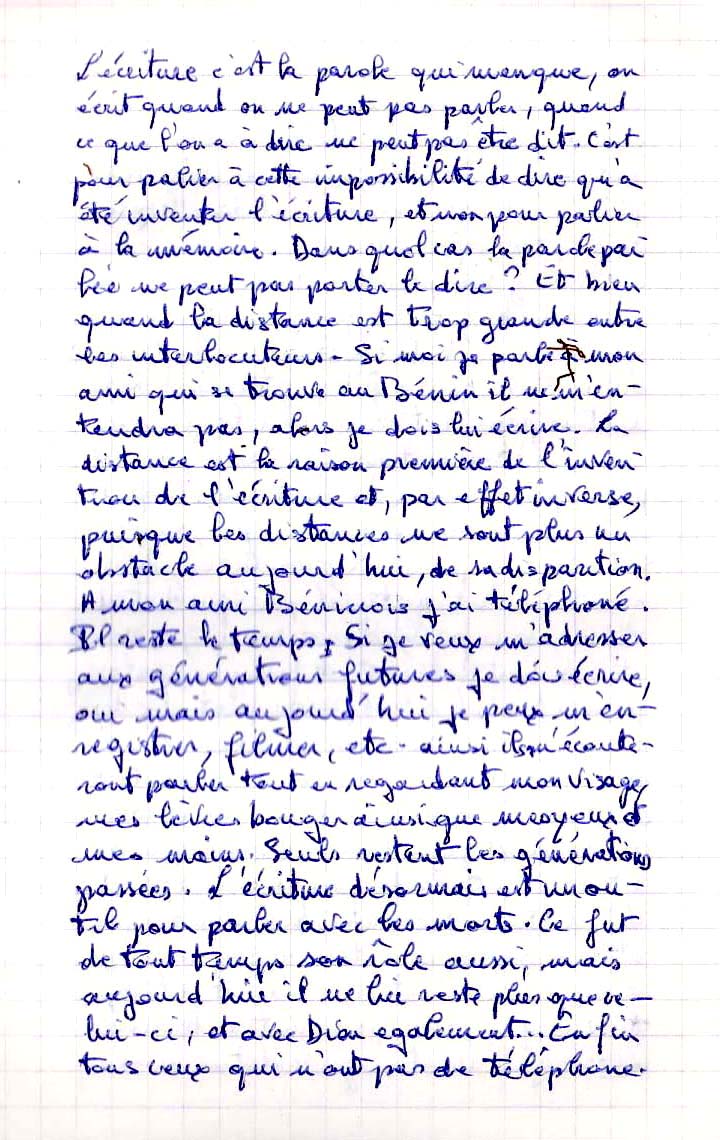 L'écriture c'est la parole qui manque, on
écrit quand on ne peut pas parler, quand
ce que l'on a à dire ne peut pas être dit. C'est
pour palier à cette impossibilité de dire qu'a
été inventer l'écriture, et non pour palier
à la mémoire. Dans quel cas la parole par
lée ne peut pas porter le dire ? Et bien
quand la distance est trop grande entre
les interlocuteurs - Si moi je parle à mon
ami qui se trouve au Bénin il ne m'en-
tendra pas, alors je dois lui écrire. La
distance est la raison première de l'inven
tion de l'écriture et, par effet inverse,
puisque les distances ne sont plus un
obstacle aujourd'hui, de sa disparition.
A mon ami Béninois j'ai téléphoné.
Il reste le temps, Si je veux m'adresser
aux générations futures je dois écrire,
oui mais aujourd'hui je peux m'en-
registrer, filmer, etc. ainsi ils m'écoute-
ront parler tout en regardant mon visage,
mes lèvres bouger ainsi que mes yeux et
mes mains. Seuls restent les générations
passées. L'écriture désormais est un ou-
til pour parler avec les morts. Ce fut
de tout temps son rôle aussi, mais
aujourd'hui il ne lui reste plus que ce-
lui-ci, et avec Dieu egalement... Enfin
tous ceux qui n'ont pas de téléphone.